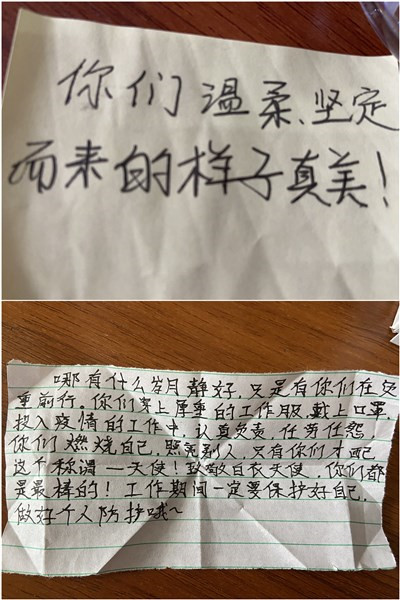 你们温柔、坚定
而来的样子真美!
哪有什么岁月静好,只是有你们在负
重前行。你们穿上厚重的工作服,戴上口罩,
投入疫情的工作中,认真负责,任劳任怨
你们燃烧自己,照亮别人,只有你们才配
这个称谓—天使!致敬白衣天使,你们都
是最棒的!工作期间一定要保护好自己,
做好个人防护哦~